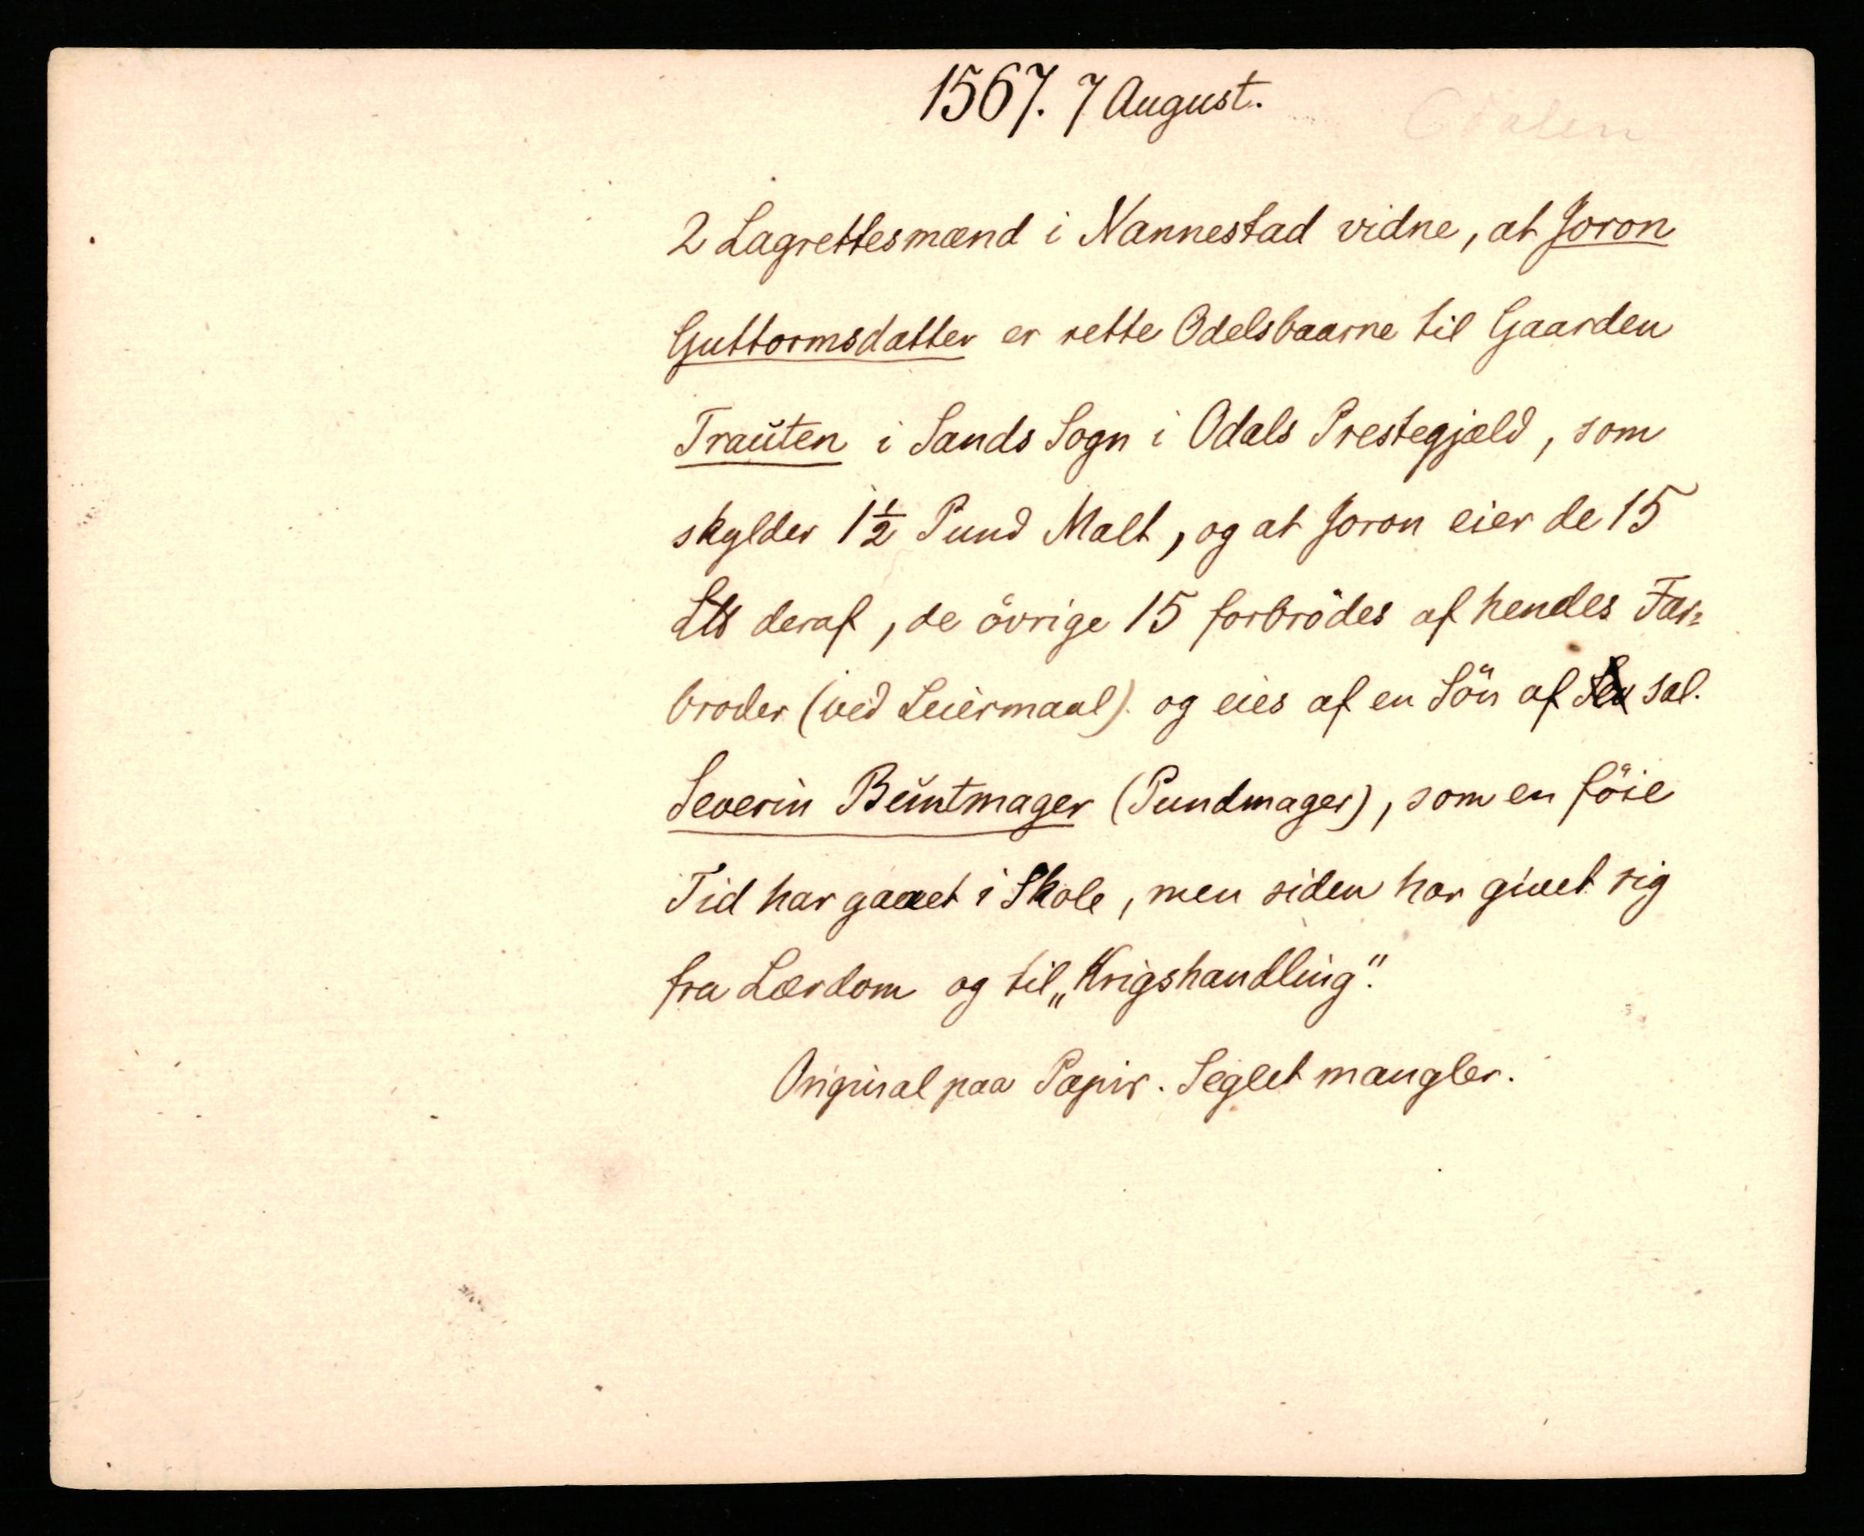 1567. 7 August.
Odalen
2 Lagrettesmænd i Nannestad vidne, at Joron
Guttormsdatter er rette Odelsbaarne til Gaarden
Traŭten i Sands Sogn i Odals Prestegjæld, som
skylder 1½ Pund Malt, og at Joron eier de 15
deraf, de övrige 15 forbrödes af hendes Far=
broder (ved Leiermaal) og eies af en Sön af sal.
Severin Bŭntmager (Pundmager), som en föie
Tid har gaaet i Skole, men siden har givet sig
fra Lærdom og til „Krigshandling“.
Original paa Papir. Seglet mangler.